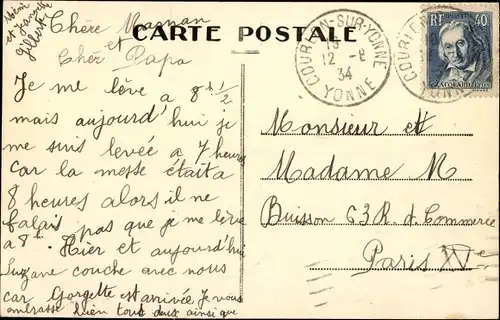 CARTE POSTALE
Chère Maman
et
Cher Papa
Je me lève a 8h ½
mais aujourd'hui je
me suis levée a 7 heures
car la messe était a
8 heures alors il ne
falais pas que je me lève
a 8h. Hier et aujourd'hui
Suzane couche avec nous
car Gorgette est arrivée. Je vous
ambrasse bien tout deux ainsi que
et Janine
Gilbert
COURLON-SUR-YONNE
12 -8
34
YONNE
COURLON
YONNE
RF 40
JACQUARD
Monsieur et
Madame M
Buisson 63 R. d. Commerce
Paris XVe